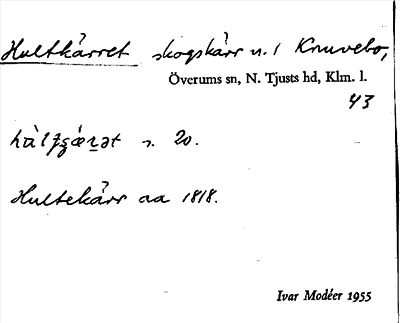 Hultkärret skogskärr n. 1 Knuvebo,
Överums sn, N. Tjusts hd, Klm. l.
43
s. 20.
Hultekärr aa 1818.
Ivar Modéer 1955